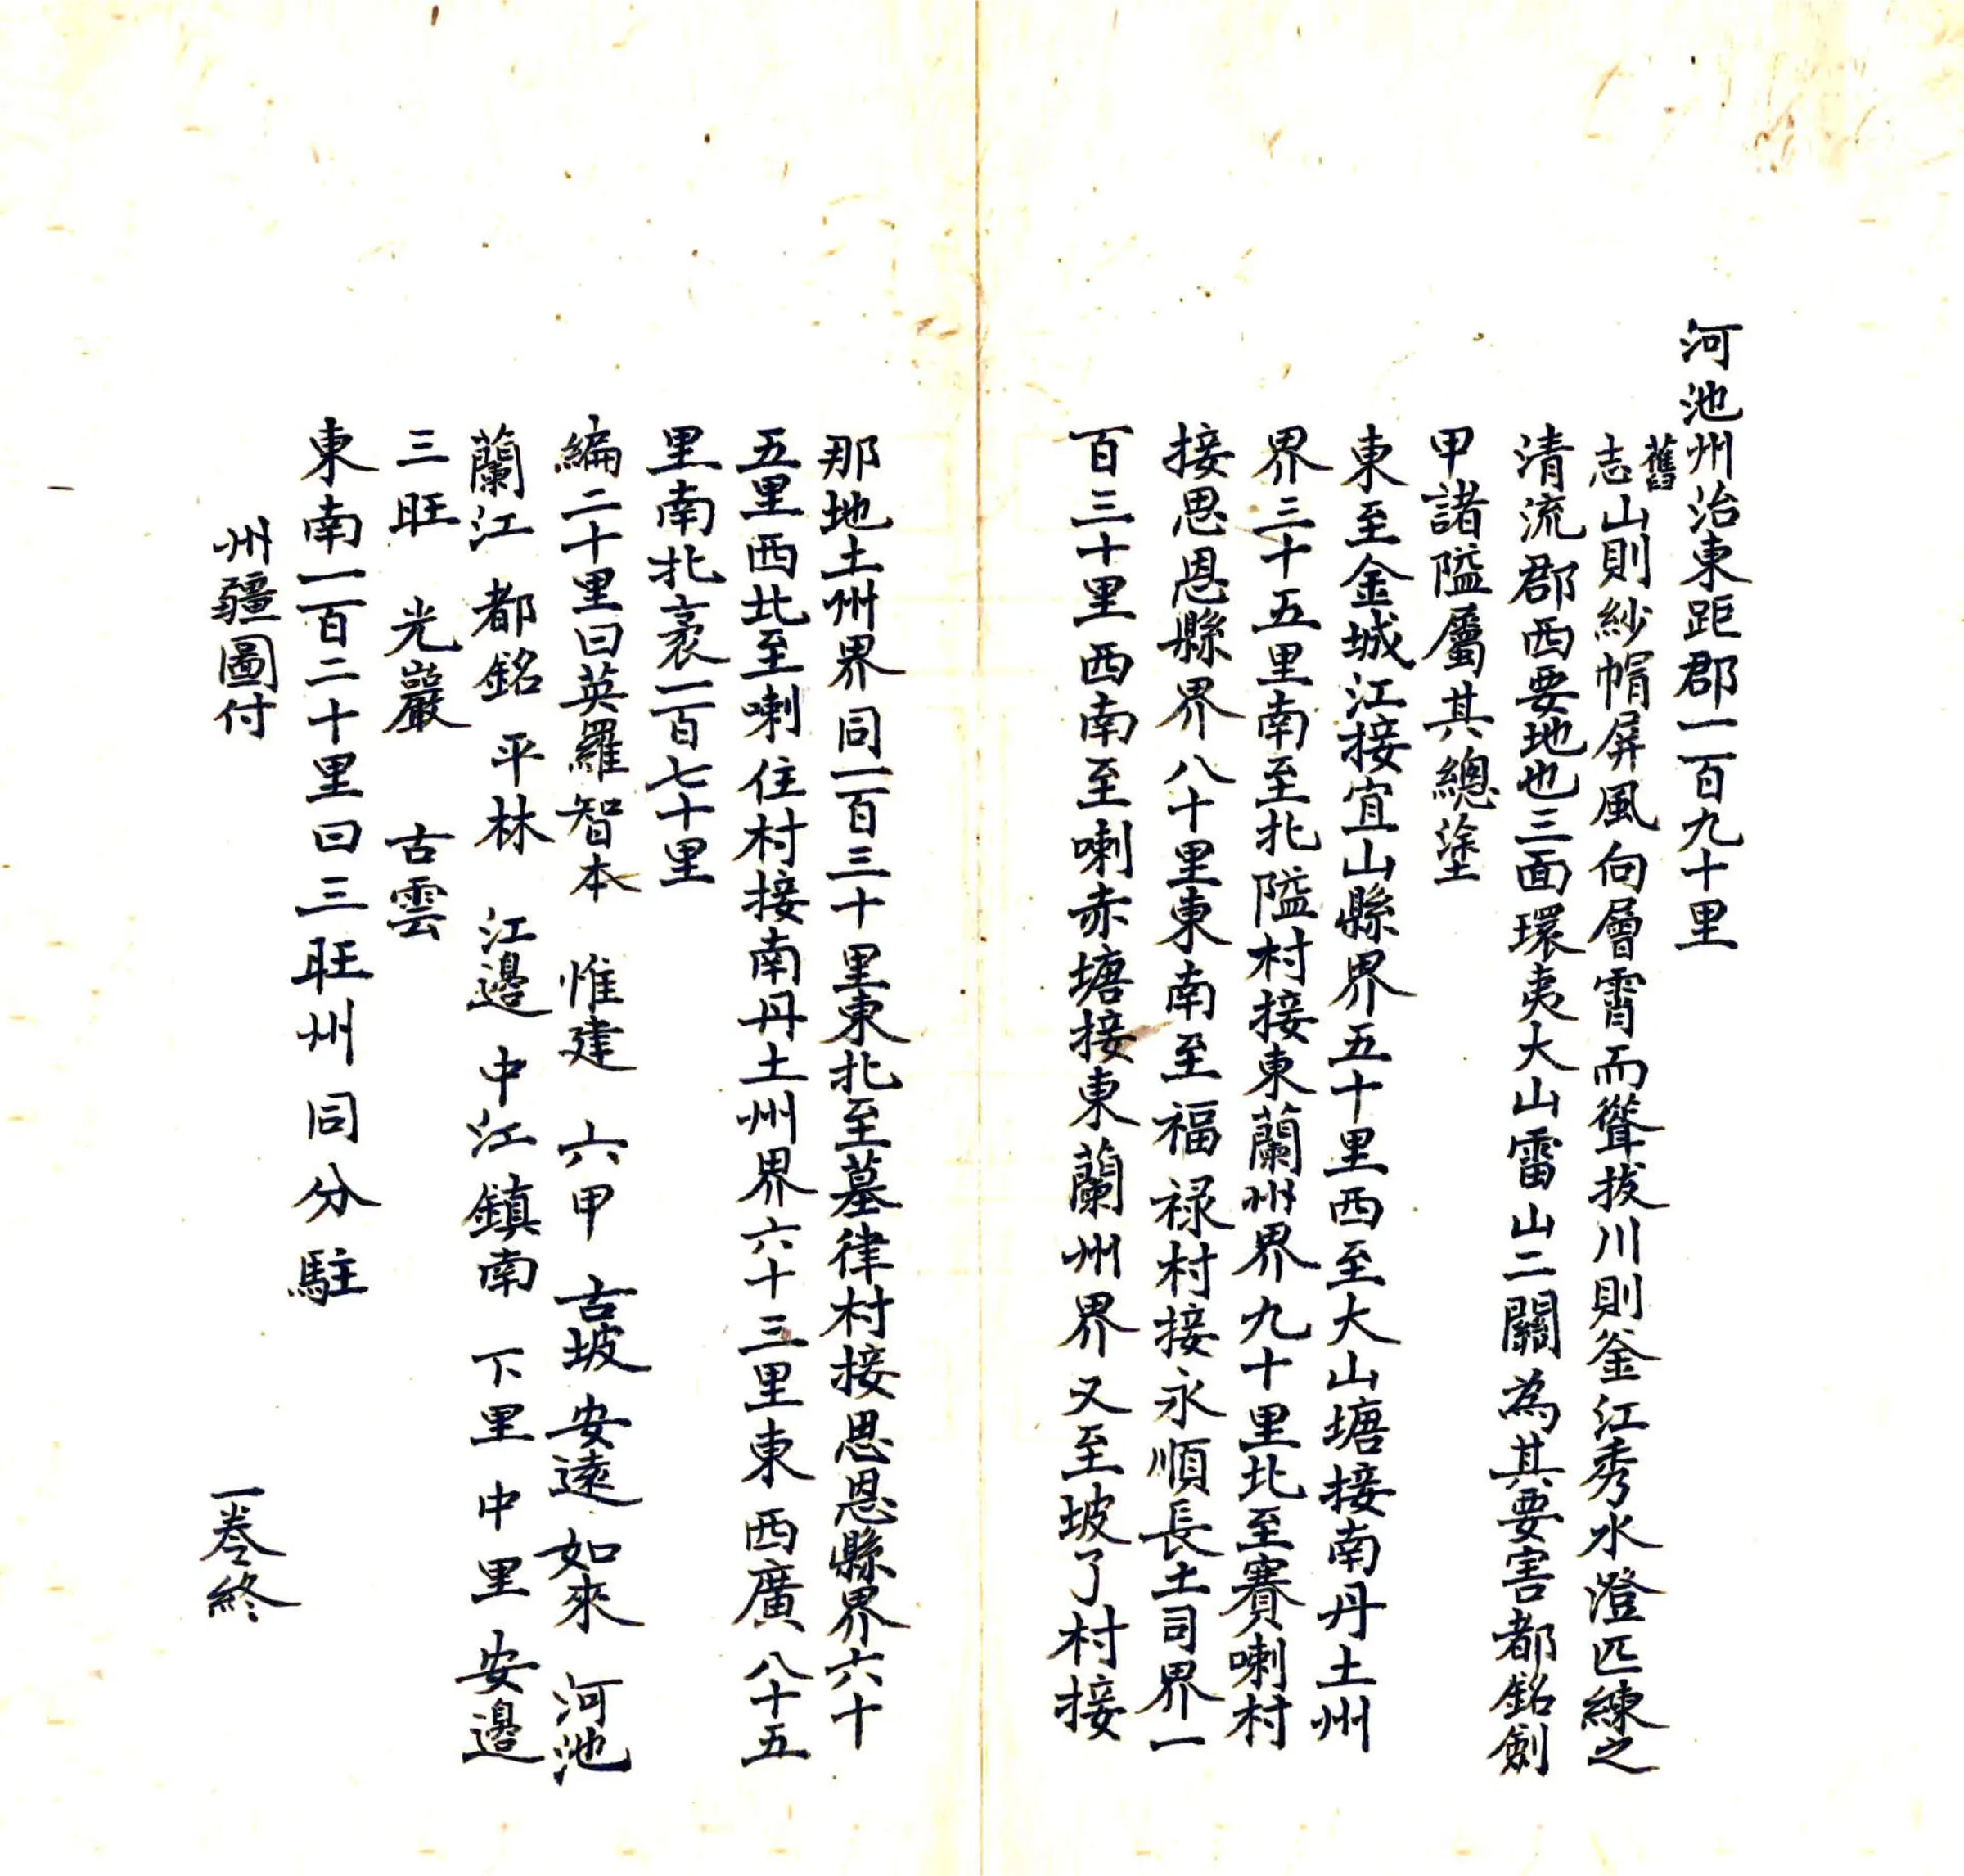 河池州治東距郡一百九十里
舊志山則紗帽屏風向層霄而聳拔川則釜江秀水澄匹練之
清流郡西要地也三面環夷大山雷山二關為其要害都銘劍
甲諸隘屬其總塗
東至金城江接宜山縣界五十里西至大山塘接南丹土州
界三十五里南至北隘村接東蘭州界九十里北至賽喇村
接思恩縣界八十里東南至福祿村接永順長土司界一
百三十里西南至喇赤塘接東蘭州界又至坡了村接
那地土州界同一百三十里東北至墓律村接思恩縣界六十
五里西北至喇住村接南丹土州界六十三里東西廣八十五
里南北袤一百七十里
編二十里曰英羅 智本 惟建 六甲 古坡 安遠 如來 河池
蘭江 都銘 平林 江邊 中江 鎮南 下里 中里 安邊
三旺 光巖 古雲
東南一百二十里曰三旺州同分駐
州疆圖付 一卷終